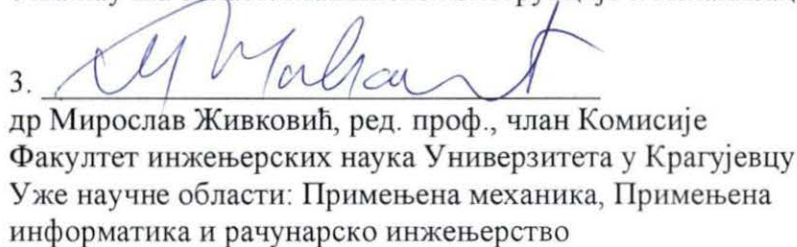 3.
др Мирослав Живковић, ред. проф., члан Комисије
Факултет инжењерских наука Универзитета у Крагујевцу
Уже научне области: Примењена механика, Примењена
информатика и рачунарско инжењерство